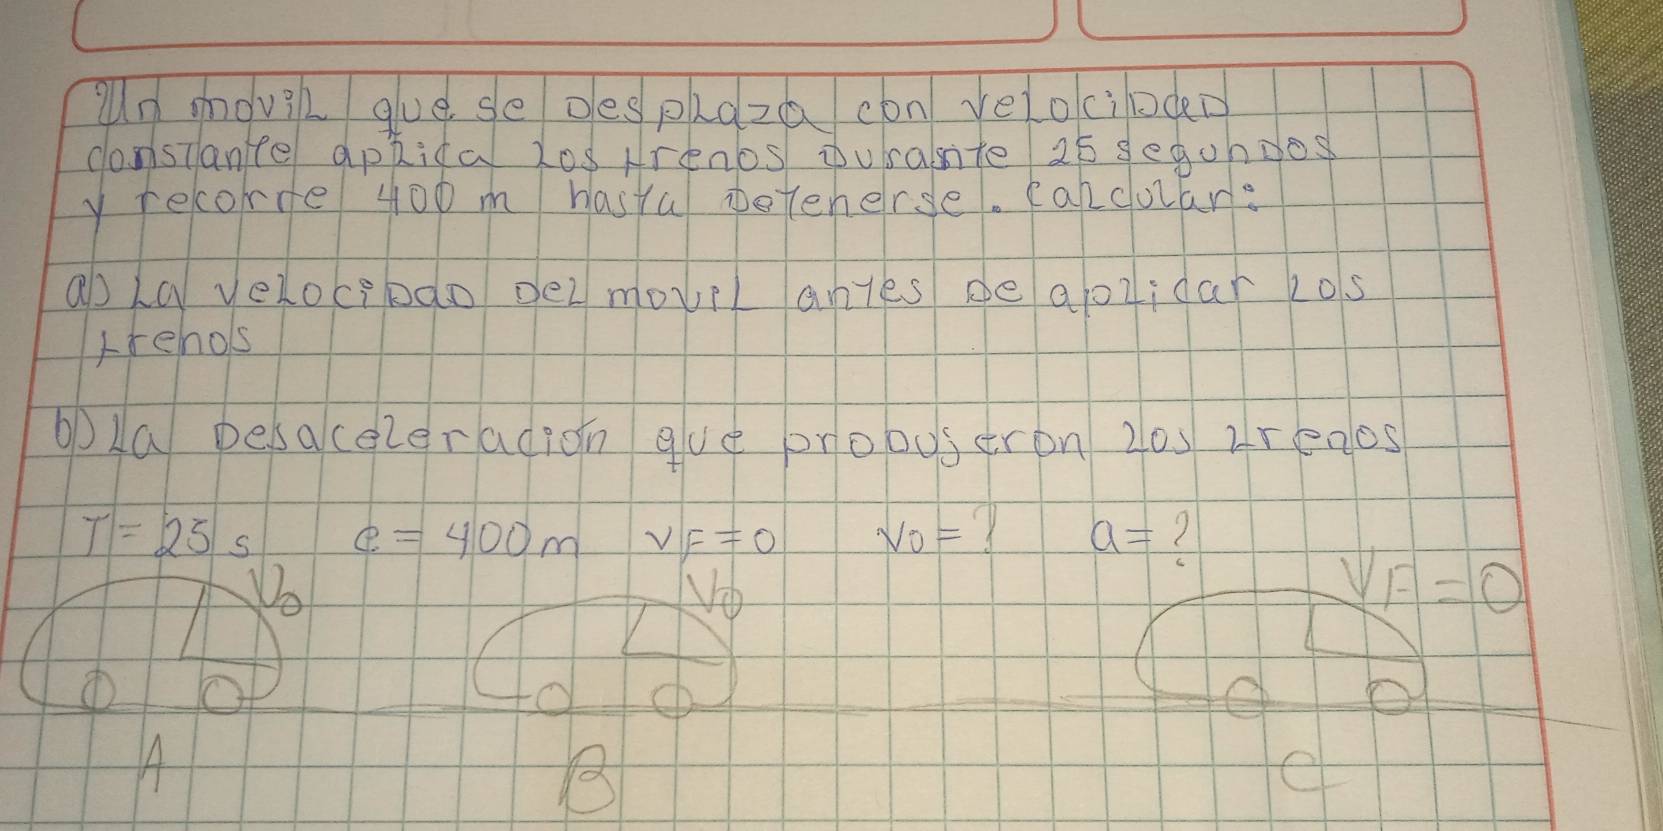 Un movil que se desplaza con velocidad
constante aplica los frenos durante 25 segundos
y recorre 400 m hasta detenerse. calcular:
a) La velocidad del movil antes de aplicar los
frenos
b) La desaceleracion que produjeron los frenos
T = 25 s e = 400 m VF = 0 Vo = ? a = ?
Vo Vo VF = 0
A B C